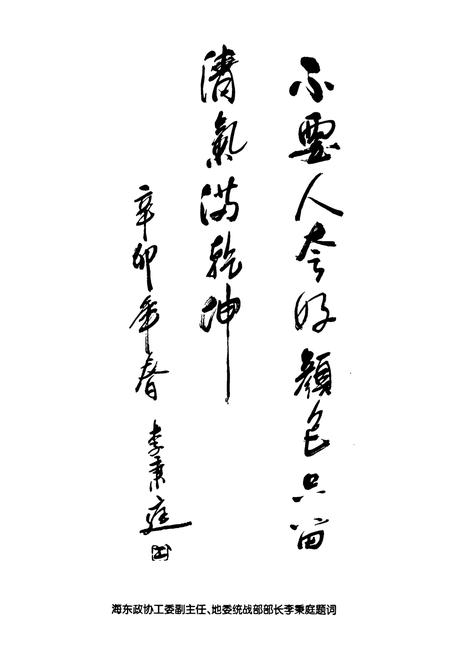 不要人夸好顏色只留
清氣满乾坤
辛卯年春 李秉庭
海东政协工委副主任、地委统战部部长李秉庭题词